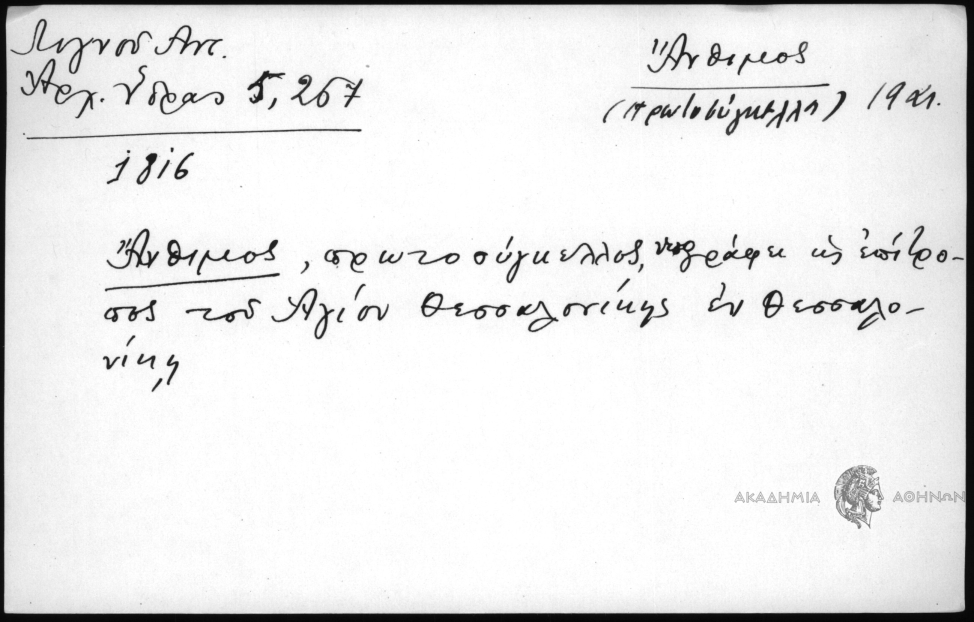 Λιγνοῦ Ἀντ.
Ἀρχ. Ὕδρας 5, 267
1816
Ἄνθιμος
(πρωτοσύγκελλος) 19 αι.
Ἄνθιμος, πρωτοσύγκελλος, υπογράφει ὡς ἐπίτρο-
πος τοῦ Ἁγίου Θεσσαλονίκης ἐν Θεσσαλο-
νίκῃ
ΑΚΑΔΗΜΙΑ ΑΘΗΝΩΝ